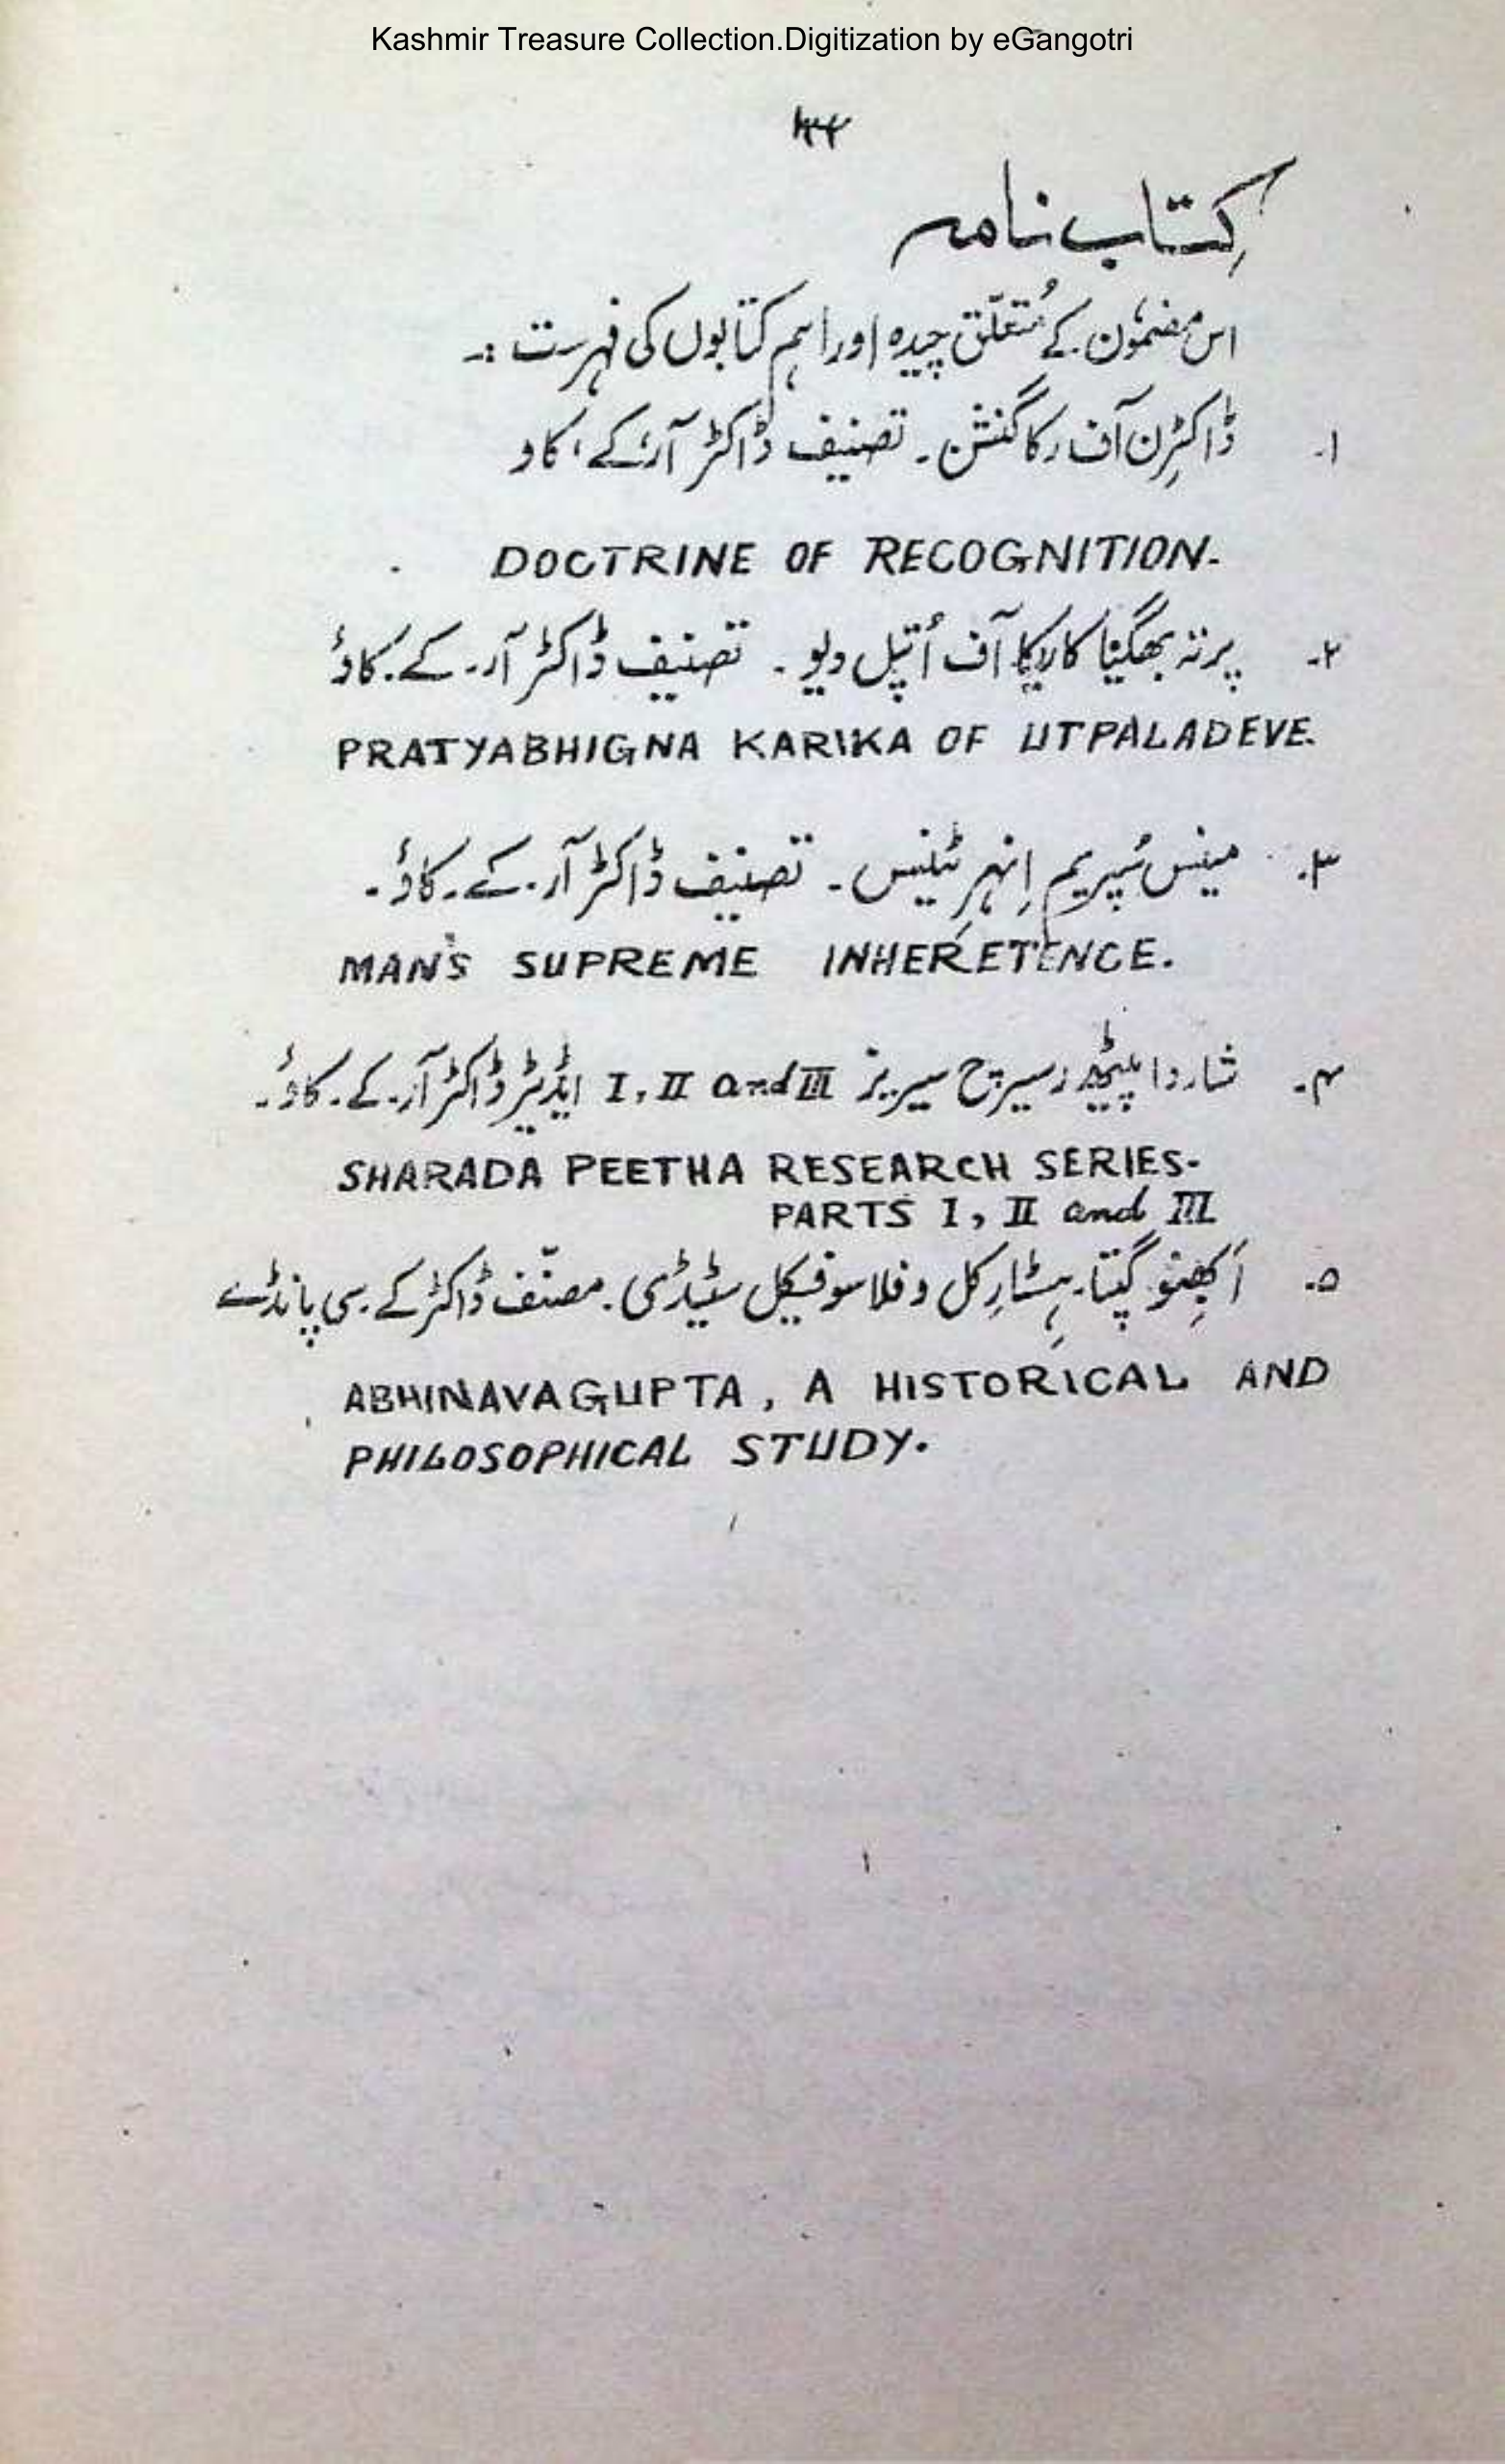 Kashmir Treasure Collection.Digitization by eGangotri
کِتاب نامہ
اس مضمُون کے مُتعلّق چیدہ اور اہم کتابوں کی فہرست :۔
۱۔ ڈاکٹرِن آف رکاگنشن ۔ تصنیف ڈاکٹر آر کے، کاو
DOCTRINE OF RECOGNITION-
۲۔ پرتہ بھگیَنا کارِیکا آف اُتپل دیو ۔ تصنیف ڈاکٹر آر۔ کے۔ کاؤ
PRATYABHIGNA KARIKA OF UTPALADEVE.
۳۔ مینس سُپریم اِنہرِ ٹینس ۔ تصنیف ڈاکٹر آر۔ کے۔ کاؤ۔
MAN'S SUPREME INHERETENCE.
۴۔ شاردا پیٹھ رسیرچ سیریز I, II and III ایڈیٹر ڈاکٹر آر۔ کے۔ کاؤ۔
SHARADA PEETHA RESEARCH SERIES-
PARTS I, II and III
۵۔ اَبھِنو گپتا۔ ہِسٹارِکل و فلاسوفیکل سٹیڈی۔ مصنّف ڈاکٹر کے۔ سی پانڈے
ABHINAVAGUPTA, A HISTORICAL AND
PHILOSOPHICAL STUDY.